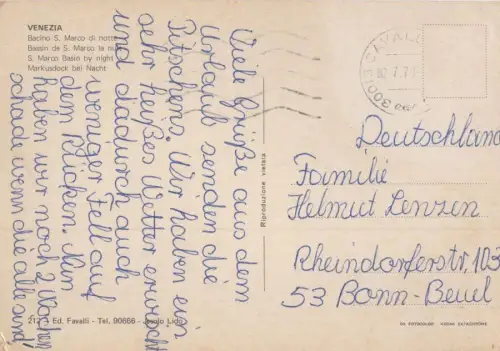 VENEZIA
Bacino S. Marco di notte
Bassin de S. Marco la nuit
S. Marco Basin by night
Markusdock bei Nacht
Viele Grüße aus dem
Urlaub senden die
Pitschens. Wir haben ein
sehr heißes Wetter erwischt
und dadurch auch
weniger Fell auf
dem Rücken. Nun
haben wir noch 2 Wochen
schade wenn die alle sind
217 - Ed. Favalli - Tel. 90666 - Jesolo Lido
Riproduzione vietata
30013 CAVALL
Deutschland
Familie
Helmut Lenzen
Rheindorferstr. 103
53 Bonn-Beuel